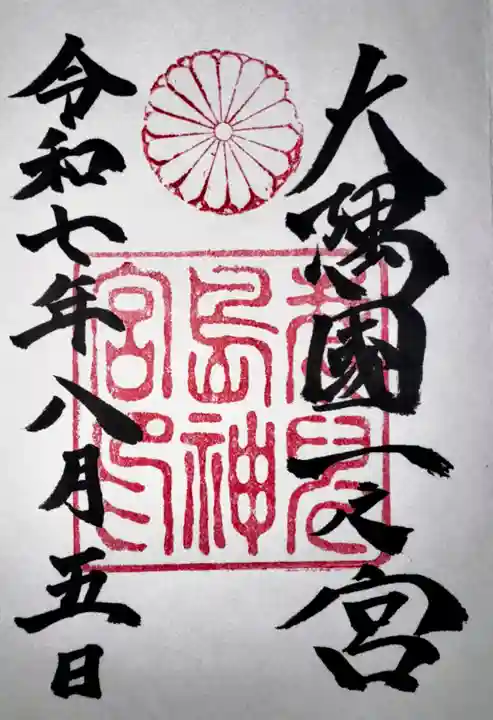 大隅國一之宮
鹿兒島神宮印
令和七年八月五日